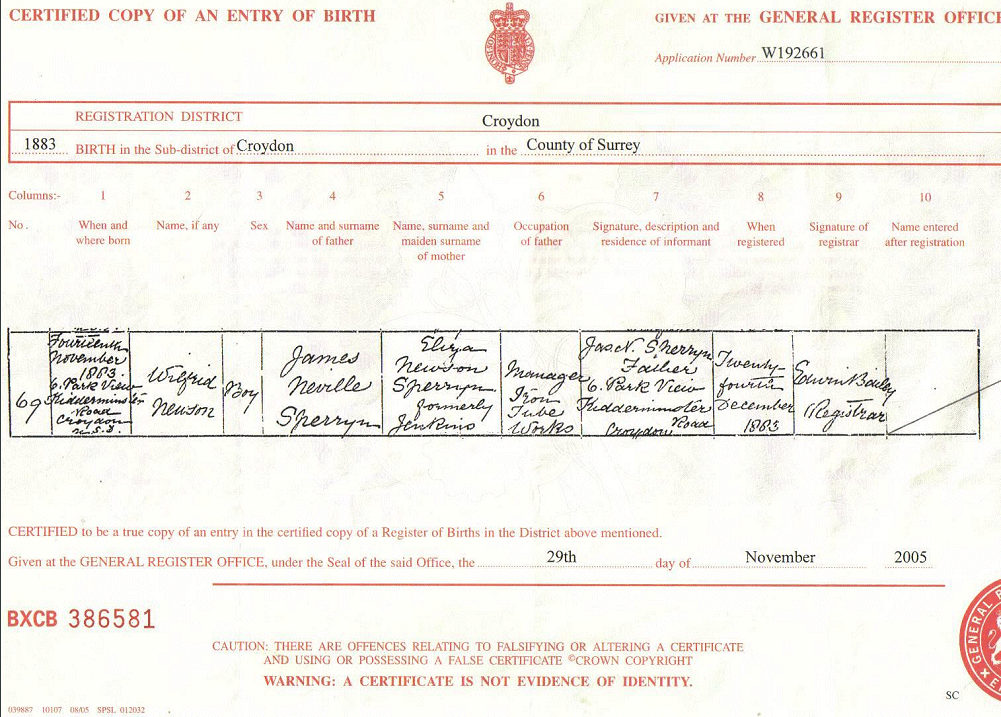 CERTIFIED COPY OF AN ENTRY OF BIRTH
GIVEN AT THE GENERAL REGISTER OFFICE
Application Number W192661
REGISTRATION DISTRICT Croydon
1883 BIRTH in the Sub-district of Croydon in the County of Surrey
Columns:- 1 2 3 4 5 6 7 8 9 10
No. When and where born Name, if any Sex Name and surname of father Name, surname and maiden surname of mother Occupation of father Signature, description and residence of informant When registered Signature of registrar Name entered after registration
69
Fourteenth
November
1883.
6. Park View
Kidderminster
Road
Croydon
U.S.D.
Wilfrid
Newson
Boy
James
Neville
Sherryn
Eliza
Newson
Sperryn
formerly
Jenkins
Manager
Iron
Tube
Works
Jas. N. Sherryn
Father
6. Park View
Kidderminster
Road
Croydon
Twenty
fourth
December
1883
Edwin Bailey
Registrar
CERTIFIED to be a true copy of an entry in the certified copy of a Register of Births in the District above mentioned.
Given at the GENERAL REGISTER OFFICE, under the Seal of the said Office, the 29th day of November 2005
BXCB 386581
CAUTION: THERE ARE OFFENCES RELATING TO FALSIFYING OR ALTERING A CERTIFICATE
AND USING OR POSSESSING A FALSE CERTIFICATE ©CROWN COPYRIGHT
WARNING: A CERTIFICATE IS NOT EVIDENCE OF IDENTITY.
GENERAL
SC
039887 10107 08/05 SPSL 012032